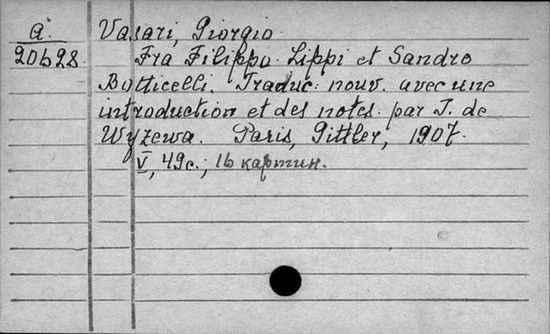 а.
20628
Vasari, Giorgio
Fra Filippo Lippi et Sandro
Botticelli. Traduc. nouv. avec une
introduction et des notes par T. de
Wyzewa. Paris, Pittler, 1907.
V, 49 с.; 16 картин.